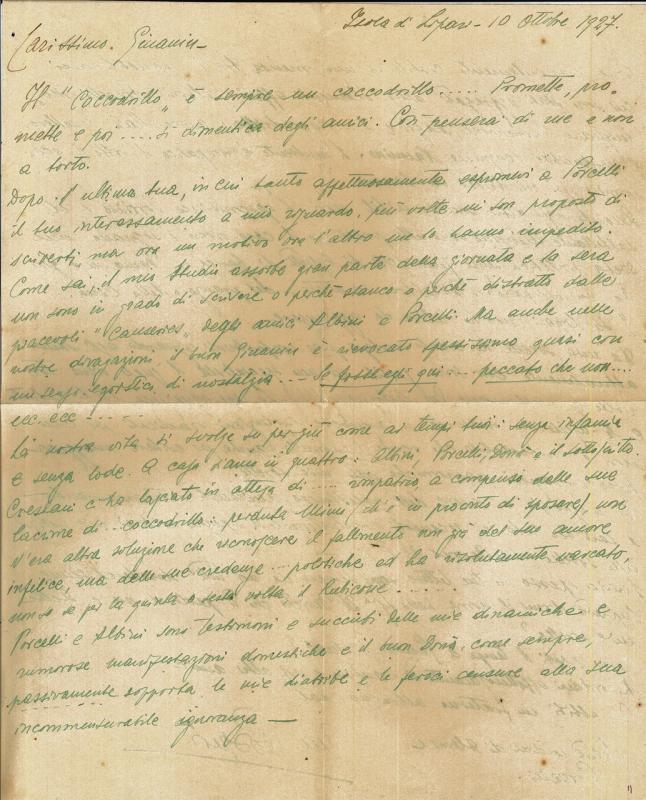 Isola di Lipari - 10 Ottobre 1927.
Carissimo
Il "Coccodrillo" è sempre un coccodrillo..... Promette, pro-
mette e poi .... si dimentica degli amici. Così penserai di me e non
a torto.
Dopo l'ultima tua, in cui tanto affettuosamente esprimevi a Porcelli
il tuo interessamento a mio riguardo, più volte mi son proposto di
scriverti ma ora un motivo ora l'altro me lo hanno impedito.
Come sai, il mio studio assorbe gran parte della giornata e la sera
non sono in grado di scrivere o perchè stanco o perchè distratto dalle
piacevoli "Causeries" degli amici Albini e Porcelli. Ma anche nelle
nostre divagazioni il buon è rievocato spessissimo quasi con
un senso egoistico di nostalgia... Se fosse egli qui... peccato che non....
ecc. ecc .....
La nostra vita si svolge su per giù come ai tempi tuoi: senza infamia
e senza lode. A casa siamo in quattro: Albini, Porcelli, Donà e il sottoscritto.
c'ha lasciato in attesa di ... rimpatrio, a compenso delle sue
lacrime di.. coccodrillo: perduta Mimì (ch'è in procinto di sposare), non
v'era altra soluzione che riconoscere il fallimento non già del suo amore
infelice, ma delle sue credenze .. politiche ed ha risolutamente varcato,
non so se per la quinta o sesta volta, il Rubicone ......
Porcelli e Albini sono testimoni e succubi delle mie dinamiche e
rumorose manifestazioni domestiche e il buon Donà, come sempre,
passivamente sopporta le mie diatribe e le feroci censure alla sua
incommensurabile ignoranza —